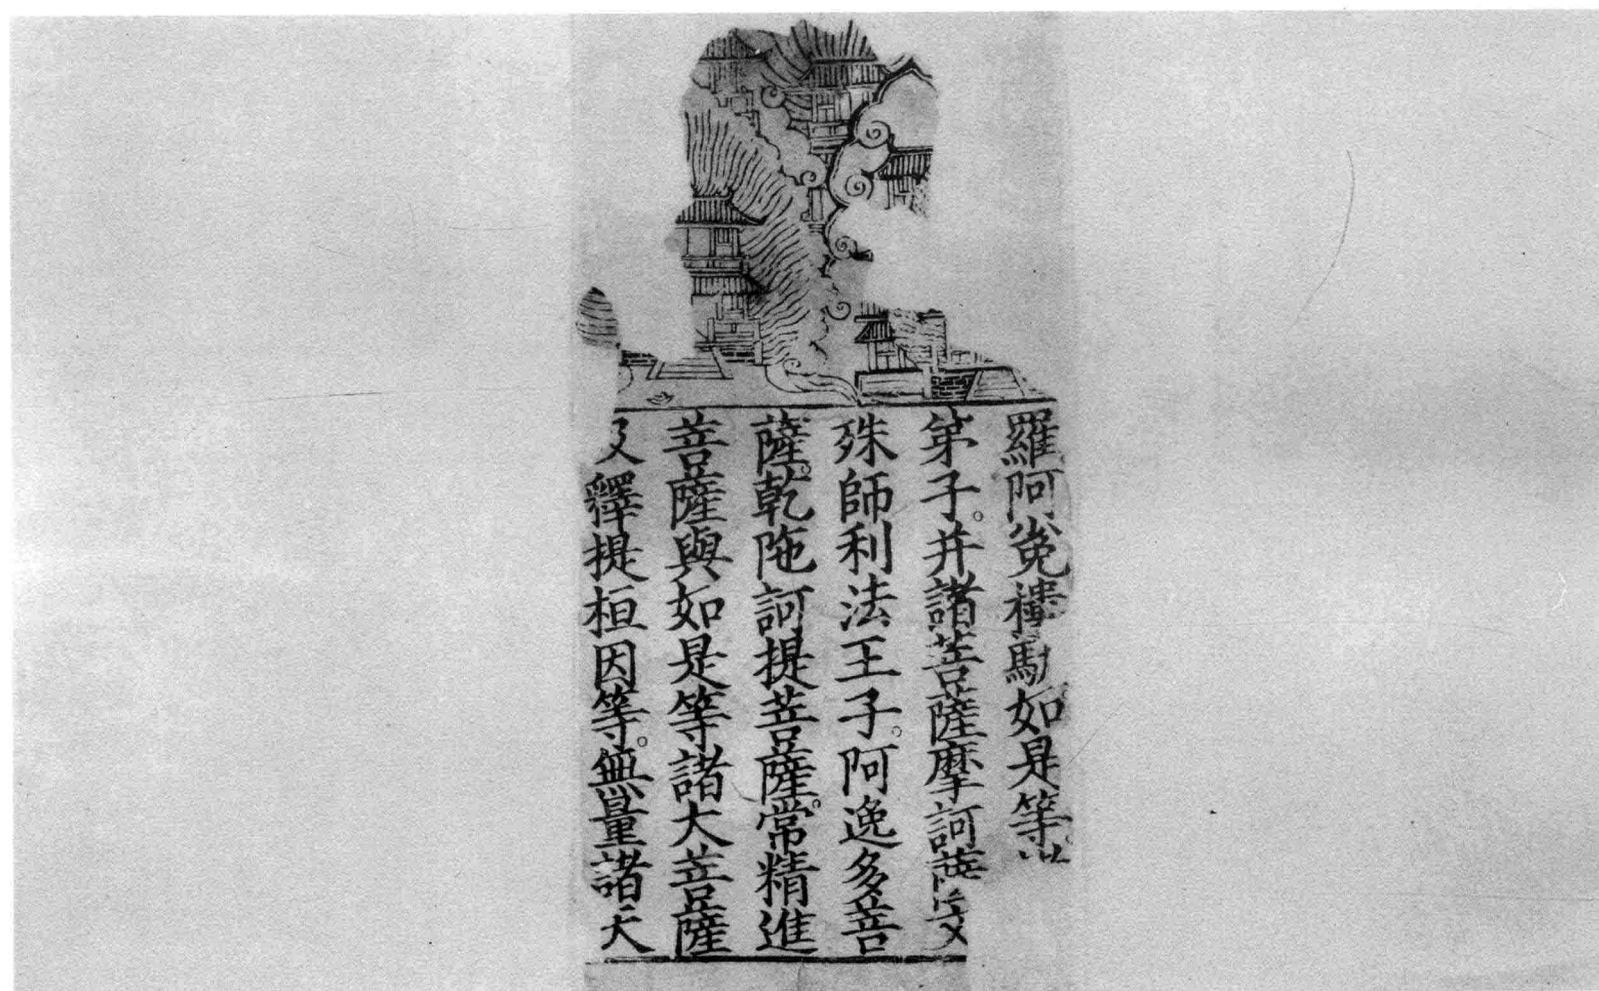 羅阿㝹樓馱如是等
苐子。并諸菩薩摩訶薩文
殊師利法王子。阿逸多菩
薩。乾陁訶提菩薩。常精進
菩薩與如是等諸大菩薩
及釋提桓因等。無量諸天